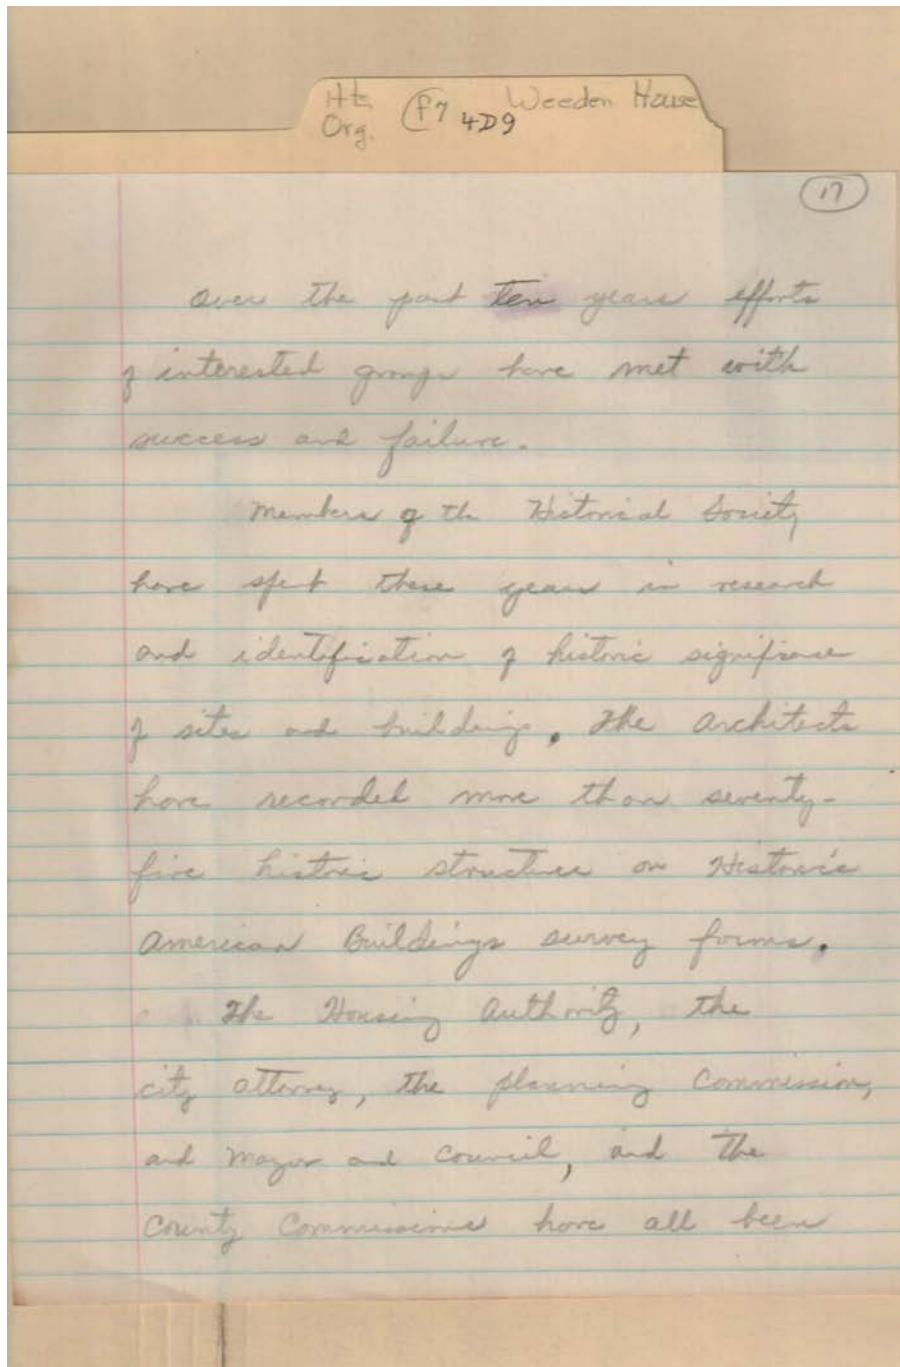 Hts. Org. F7 4D9 Weeden House
17
Over the past ten years efforts
of interested groups have met with
success and failure.
Members of the Historical Society
have spent these years in research
and identification of historic significance
of sites and buildings. The architects
have recorded more than seventy-
five historic structures on Historic
American Buildings survey forms.
The Housing Authority, the
city attorney, the planning Commission,
and Mayor and Council, and the
County Commissions have all been